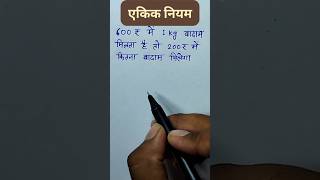 एकिक नियम
600 ₹ में 1 kg बादाम
मिलता है तो 200 ₹ में
कितना बादाम मिलेगा